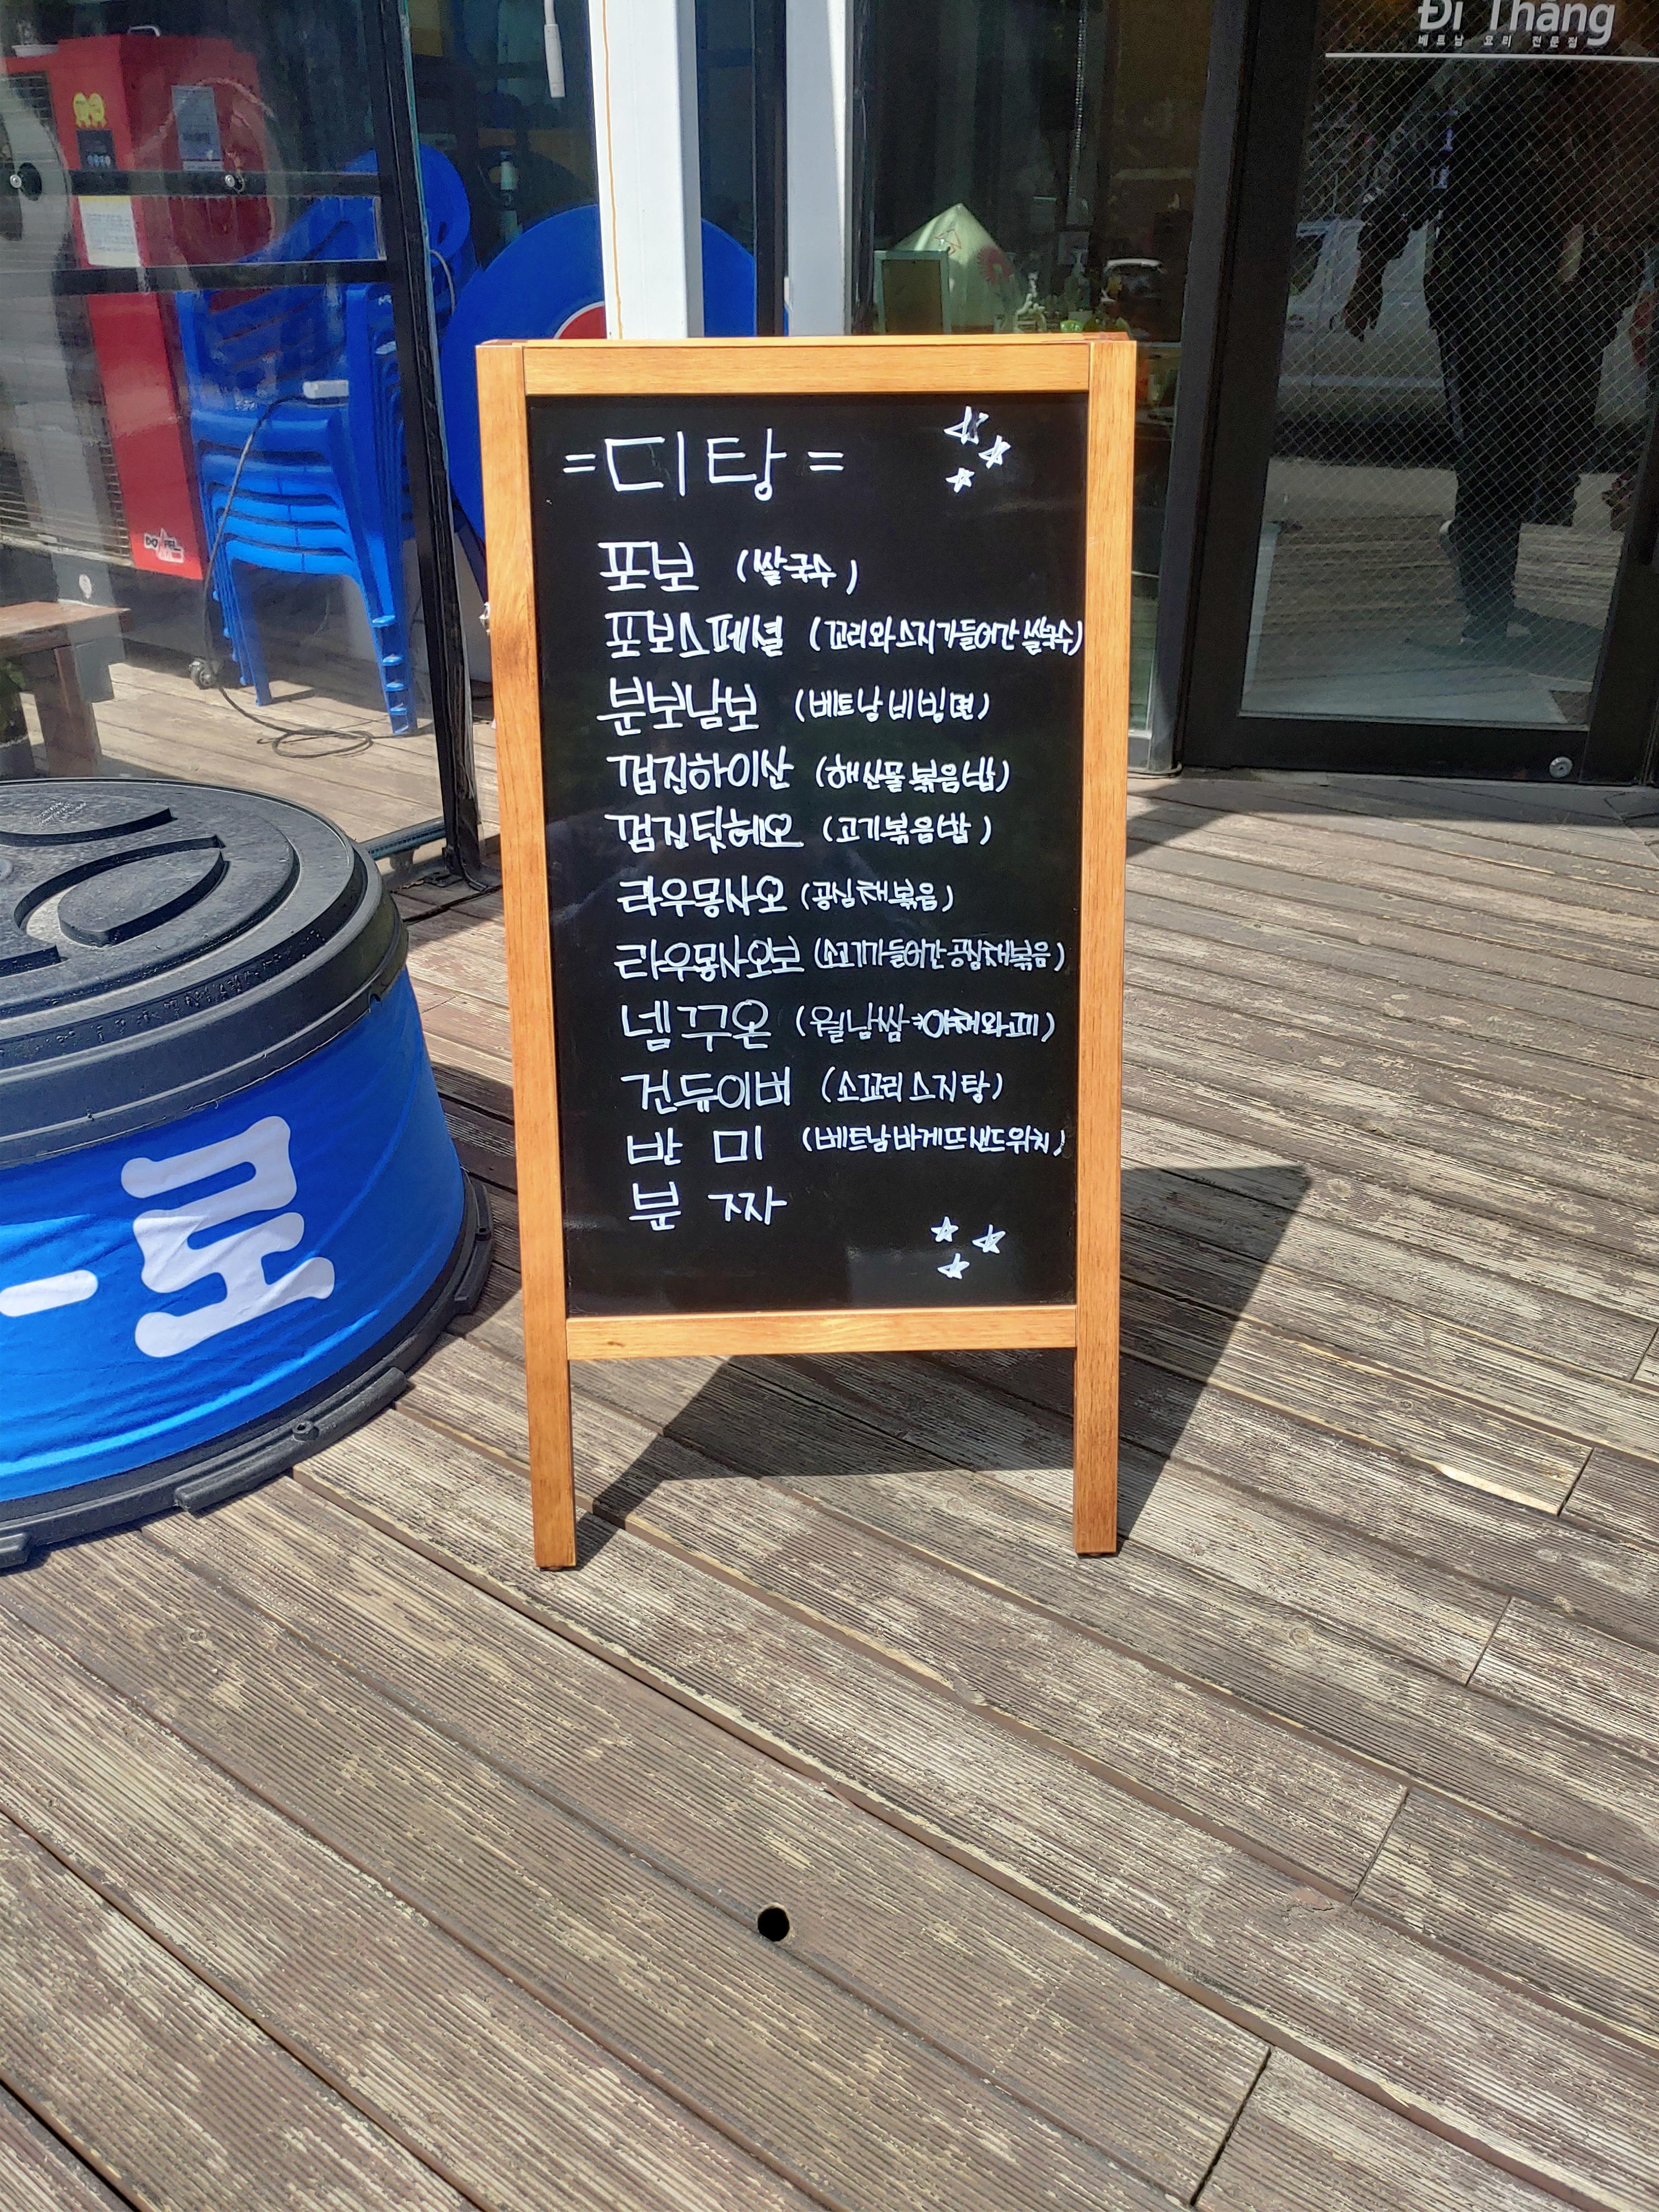 Đi Thăng
베트남 요리 전문점
=디탕=
포보 (쌀국수)
포보스페셜 (꼬리와스지가들어간쌀국수)
분보남보 (베트남비빔면)
껌진하이산 (해산물볶음밥)
껌진팃헤오 (고기볶음밥)
라우몽사오 (공심채볶음)
라우몽사오보 (소고기가들어간공심채볶음)
넴꾸온 (월남쌈
건듀이버 (소꼬리스지탕)
반 미 (베트남바게뜨샌드위치)
분 짜